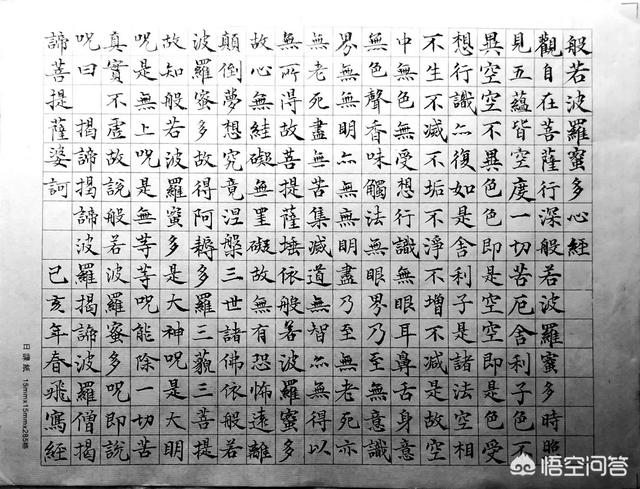 般若波羅蜜多心經
觀自在菩薩行深般若波羅蜜多時照
見五蘊皆空度一切苦厄舍利子色不
異空空不異色色即是空空即是色受
想行識亦復如是舍利子是諸法空相
不生不滅不垢不淨不增不減是故空
中無色無受想行識無眼耳鼻舌身意
無色聲香味觸法無眼界乃至無意識
界無無明亦無無明盡乃至無老死亦
無老死盡無苦集滅道無智亦無得以
無所得故菩提薩埵依般若波羅蜜多
故心無絓礙無罣礙故無有恐怖遠離
顛倒夢想究竟涅槃三世諸佛依般若
波羅蜜多故得阿耨多羅三藐三菩提
故知般若波羅蜜多是大神呪是大明
呪是無上呪是無等等呪能除一切苦
真實不虛故說般若波羅蜜多呪即說
呪曰 揭諦揭諦波羅揭諦波羅僧揭
諦菩提薩婆訶 己亥年春飛寫經
日課紙 15mmx15mmx285格
悟空问答